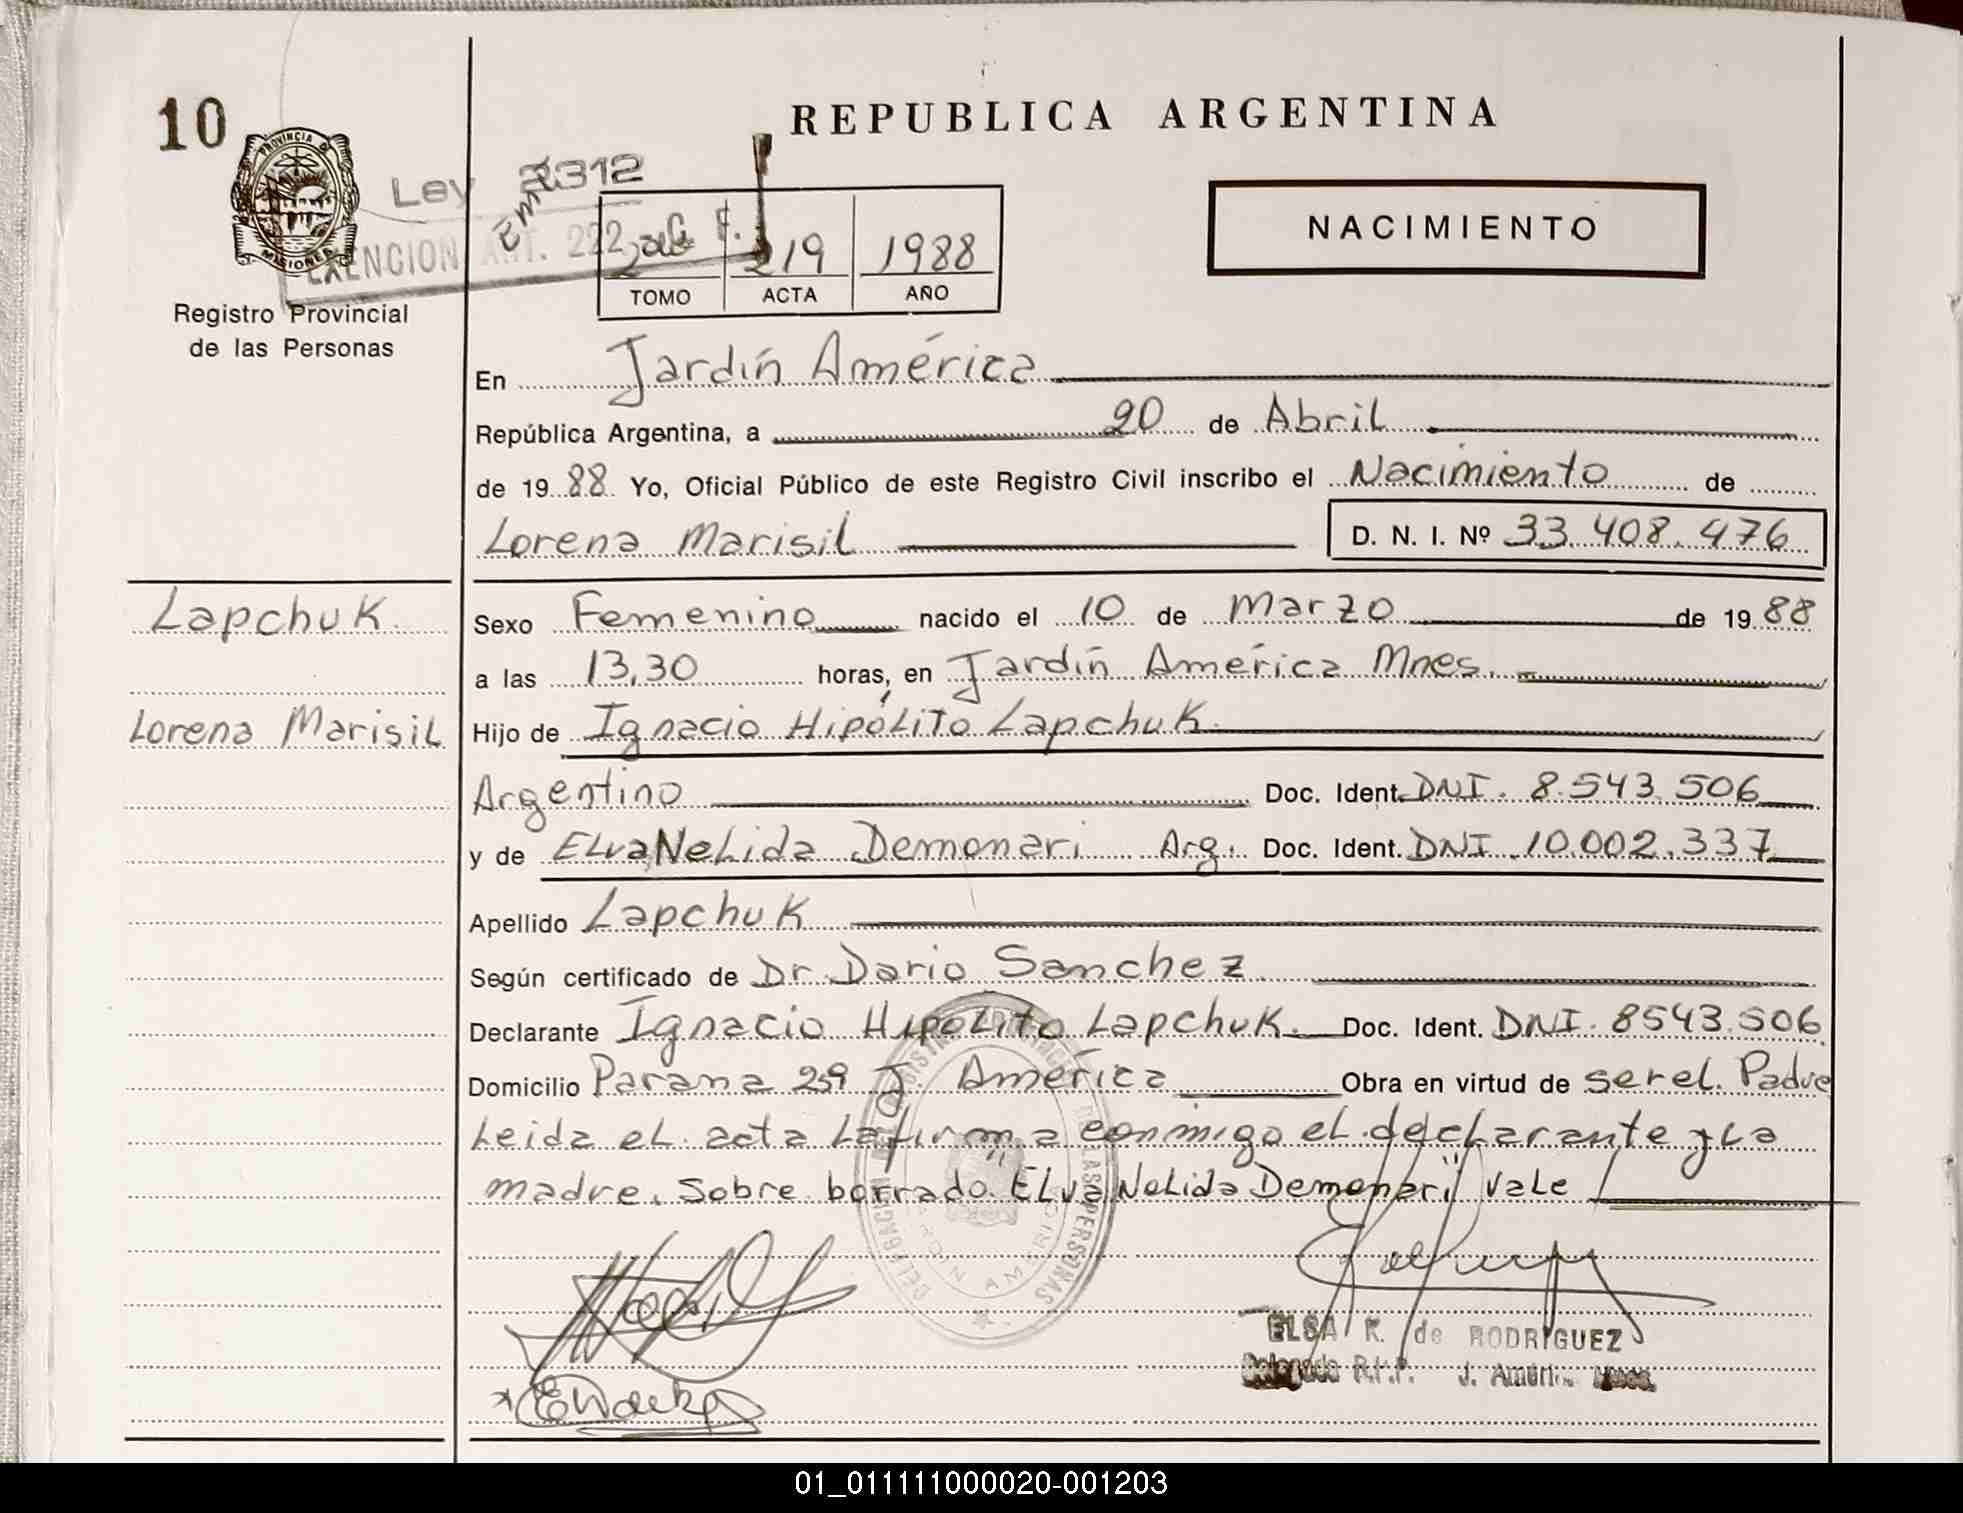 REPUBLICA ARGENTINA
10
PROVINCIA DE MISIONES
Ley 2312
EXENCION ART. 222
NACIMIENTO
219 1988
TOMO ACTA AÑO
Registro Provincial
de las Personas
En Jardín América
República Argentina, a 20 de Abril
de 1988 Yo, Oficial Público de este Registro Civil inscribo el Nacimiento de
Lorena Marisil D. N. I. Nº 33.408.476
Lapchuk
Sexo Femenino nacido el 10 de Marzo de 1988
a las 13,30 horas, en Jardín América Mnes.
Lorena Marisil
Hijo de Ignacio Hipólito Lapchuk.
Argentino Doc. Ident. DNI. 8.543.506
y de Elva Nelida Demonari Arg. Doc. Ident. DNI 10.002.337
Apellido Lapchuk
Según certificado de Dr. Dario Sanchez
Declarante Ignacio Hipolito Lapchuk. Doc. Ident. DNI. 8543.506
Domicilio Parana 259 J. América Obra en virtud de ser el Padre
Leida el acta la firma conmigo el declarante y la
madre. Sobre borrado. Elva Nelida Demonari Vale
ELSA R. de RODRIGUEZ
Delegada R.P.P. J. Améri.. Mnes.
01_011111000020-001203